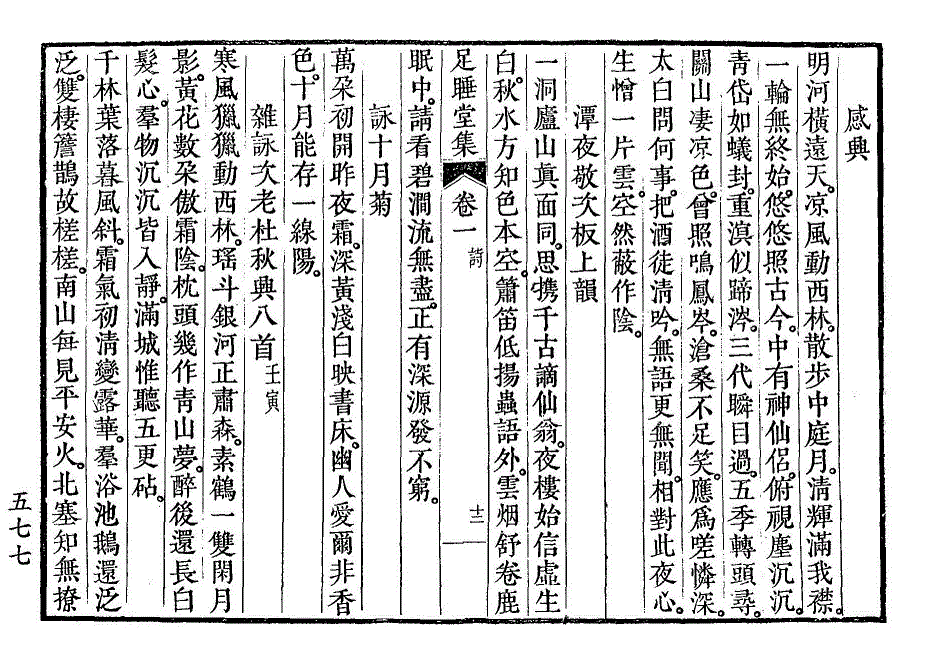 感興
明河橫遠天。凉風動西林。散步中庭月。淸輝滿我襟。
一輪無終始。悠悠照古今。中有神仙侶。俯視塵沉沉。
靑岱如蟻封。重溟似蹄涔。三代瞬目過。五季轉頭尋。
關山凄凉色。曾照鳴鳳岑。滄桑不足笑。應爲嗟憐深。
太白問何事。把酒徒淸吟。無語更無聞。相對此夜心。
生憎一片雲。空然蔽作陰。
潭夜敬次板上韻
一洞廬山眞面同。思携千古謫仙翁。夜樓始信虛生
白。秋水方知色本空。簫笛低揚蟲語外。雲烟舒卷鹿
足睡堂集 卷一 詩 十二
眠中。請看碧澗流無盡。正有深源發不窮。
詠十月菊
萬朶初開昨夜霜。深黃淺白映書床。幽人愛爾非香
色。十月能存一線陽。
雜詠次老杜秋興八首 壬寅
寒風獵獵動西林。瑤斗銀河正肅森。素鶴一雙閑月
影。黃花數朶傲霜陰。枕頭幾作靑山夢。醉後還長白
髮心。羣物沉沉皆入靜。滿城惟聽五更砧。
千林葉落暮風斜。霜氣初淸變露華。羣浴池鵝還泛
泛。雙棲簷鵲故槎槎。南山每見平安火。北塞知無撩
五七七